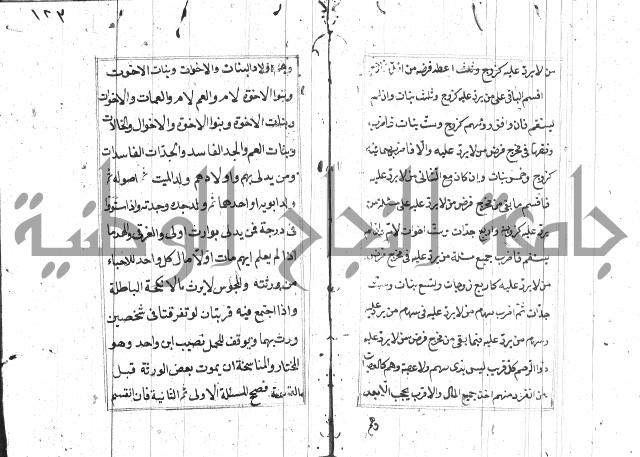 ١٢٣
من لا يرد عليه كزوج وثلث اعطه فرضه من اقل مخارجه
اقسم الباقى على من يرد عليه كزوج وثلث بنات وان لم
يستقم فان وافق رؤسهم كزوج وست بنات فاضرب
وفقها فى مخرج فرض من لا يرد عليه والا فاضرب
كزوج وخمس بنات وان كان مع الثانى من لا يرد عليه
فاقسم ما بقى من مخرج فرض من لا يرد عليه على مسئلة من
يرد عليه كزوجة واربع جدات وست اخوات لام وان لم
يستقم فاضرب جميع مسئلة من يرد عليه فى مخرج فرض
من لا يرد عليه كاربع زوجات وتسع بنات وست
جدات ثم اضرب سهام من لا يرد عليه فى سهام من يرد عليه
وسهام من يرد عليه فيما بقى من مخرج فرض من لا يرد عليه
ذوا الرحم كل قريب ليس بذى سهم ولا عصبة وهم كالعصبات
من انفرد منهم اخذ جميع المال والاقرب يحجب الابعد
وهم
وهم اولاد البنات والاخوات وبنات الاخوت
وبنوا الاخوة لام والعم لام والعمات والاخوت
وبنات الاخوة وبنوا الاخوة والاخوال والخالات
وبنات العم والجد الفاسد والجدات الفاسدات
ومن يدلى بهم واولادهم ولد الميت ثم اصوله ثم
ولد ابويه او احدهما ثم ولد جده وجدته واذا استووا
فى درجة فمن يدلى بوارث اولى والغرقى والهدما
اذا لم يعلم ايهم مات اولا مال كل واحد للاحياء
من ورثته والمجوس لا يرث بالانكحة الباطلة
واذا اجتمع فيه قربتان لو تفرقتا فى شخصين
ورث بهما ويوقف للحمل نصيب ابن واحد وهو
المختار والمناسخة ان يموت بعض الورثة قبل
القسمة فصحح المسئلة الاولى ثم الثانية فان انقسم
جامعة النجاح الوطنية